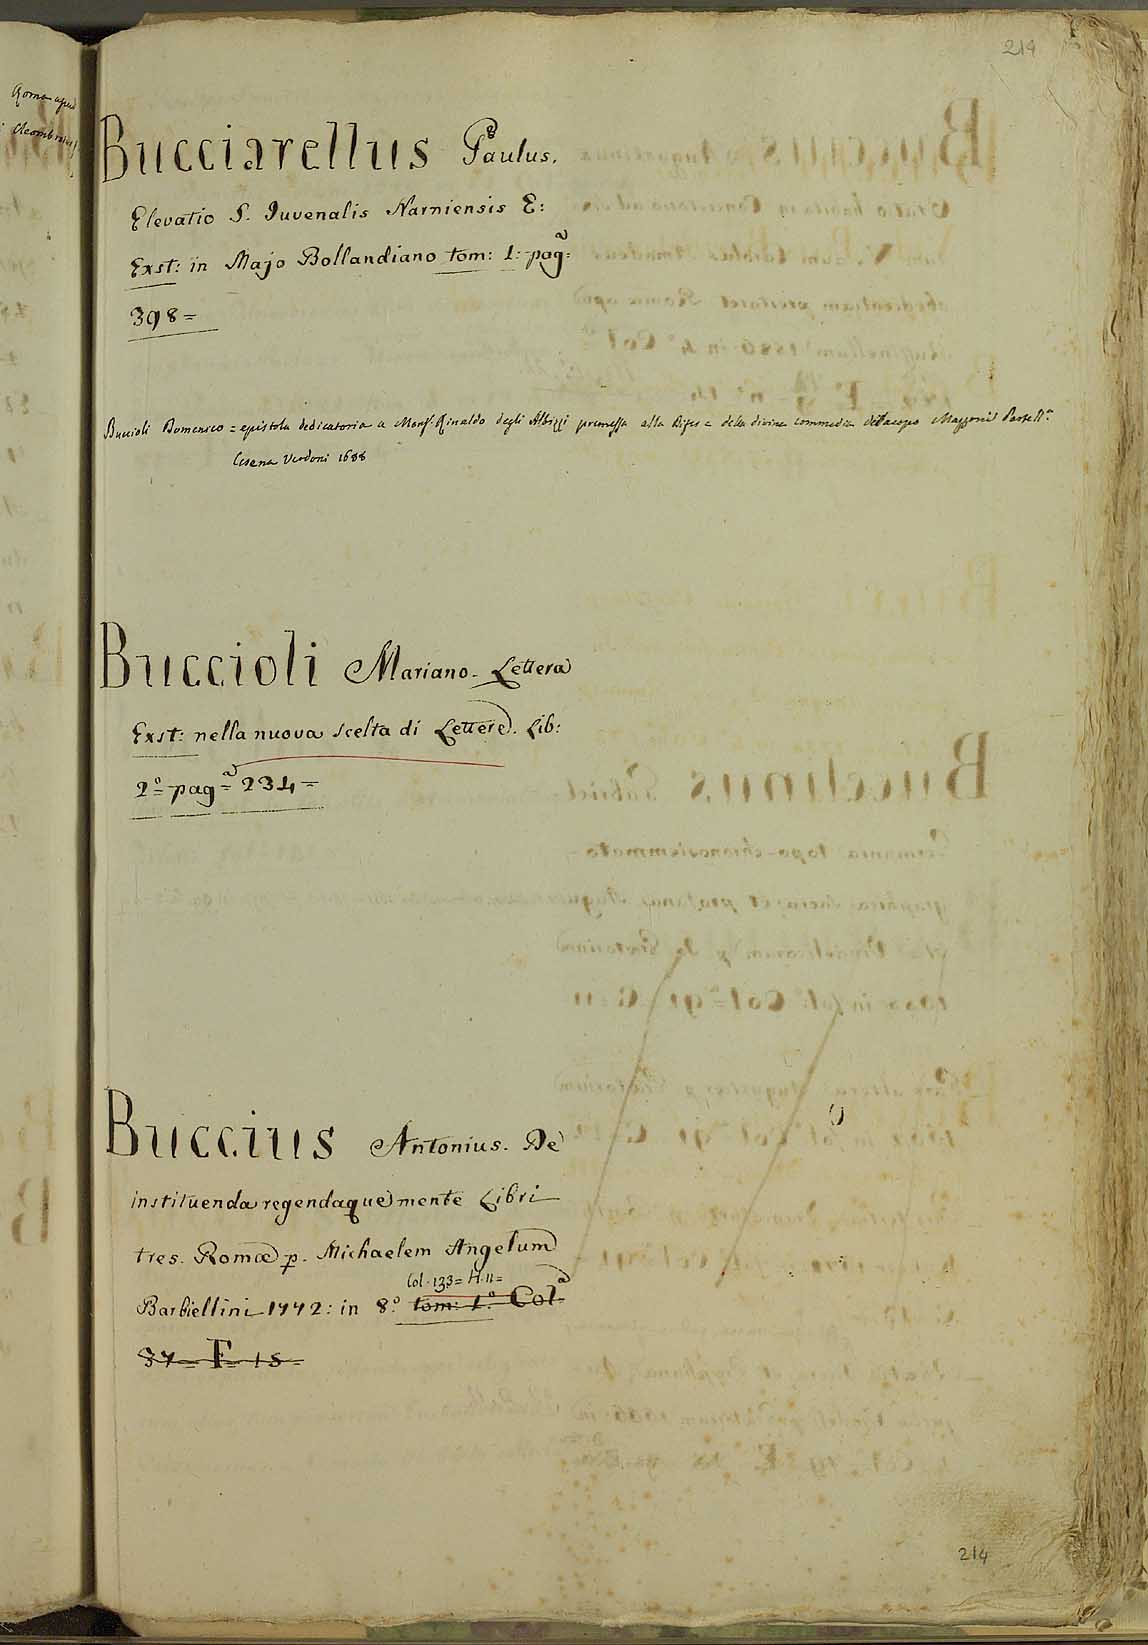 214
Roma apud
Cleombrotus
Bucciarellus Paulus.
Elevatio S. Juvenalis Narniensis E:
Exst: in Majo Bollandiano tom: 1: pagª:
398=
Buccioli Domenico = epistola dedicatoria a Monsr. Rinaldo degli Albizzi premessa alla difesa della divina commedia di Jacopo Mazzoni
Cesena Verdoni 1688
Buccioli Mariano. Lettera
Exst: nella nuova scelta di Lettere. Lib:
2º pagª 234=
Buccius Antonius. De
instituenda regendaque mente Libri
tres. Romæ p. Michaelem Angelum
Col. 133= H. 11=
Barbiellini 1772: in 8º tom: 1º Colª
37= F= 15=
214